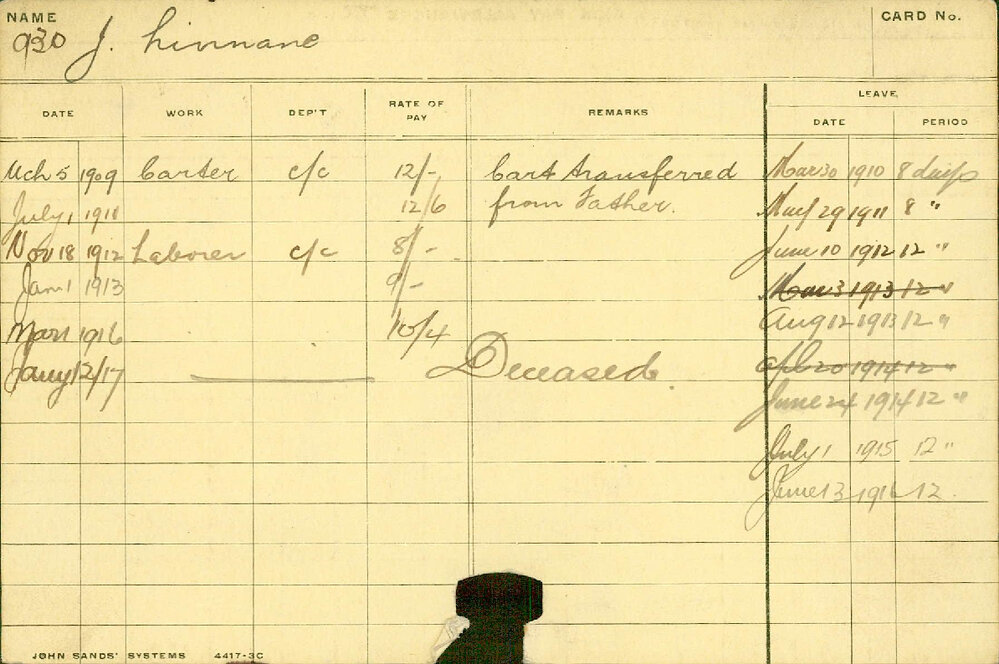 NAME
CARD No.
930 J. Linnane
LEAVE
DATE WORK DEP'T RATE OF PAY REMARKS DATE PERIOD
Mch 5 1909 Carter c/c 12/- Cart transferred Mar 30 1910 8 days
July 1 1911 12/6 from Father. May 29 1911 8 "
Nov 18 1912 Laborer c/c 8/- June 10 1912 12 "
Jan 1 1913 9/- Mar 3 1913 12 "
Mar 1 1916 10/4 Aug 12 1913 12 "
Jany 12/17 Deceased. Apl 20 1914 12 "
June 24 1914 12 "
July 1 1915 12 "
June 13 1916 12.
JOHN SANDS' SYSTEMS 4417-3C